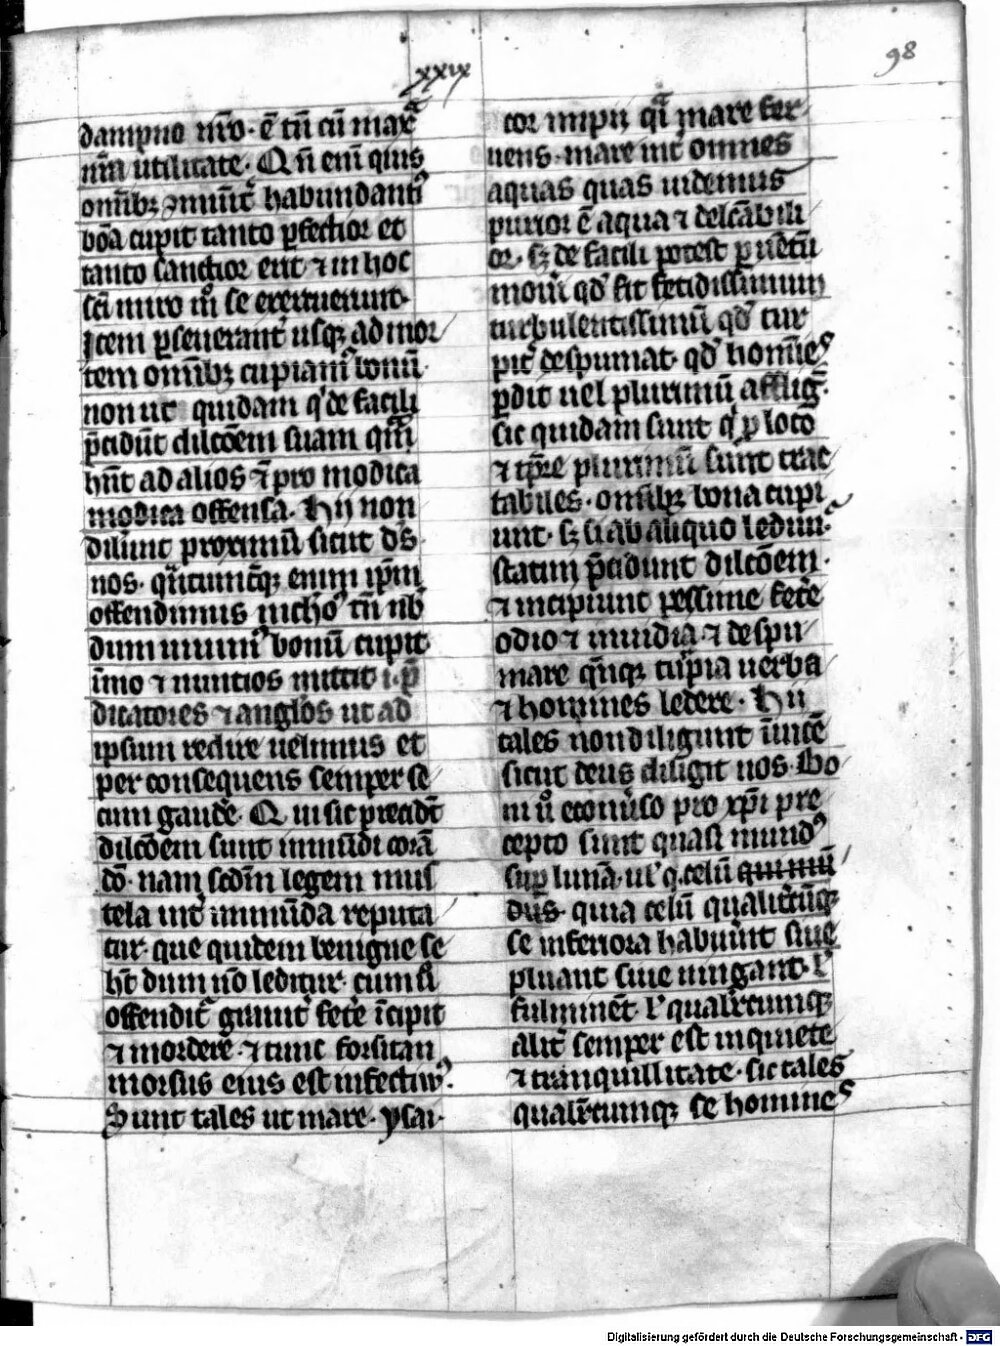 xxix
98
dampno nr̄o · ē tn̄ cū maxͣ
nr̄a utilitate · Qn̄ enī quis
om̄ibꝫ ꝯmunit̾ habundanti᾽
bōa cupit tanto ꝑfectior et
tanto sanctior erit ⁊ in hoc
sc̄i miro mͦ se exercuerunt ·
Item ꝑseuerant᾽ usqꝫ ad mor
tem om̄ibꝫ cupiam᾽ bonū ·
non ut quidam q de facili
p̄cidūt dilcōem suam quā
hn̄t ad alios ēͬ pro modica
modica offensa · Hij non
dilr̄unt proximū sicut ds̄
nos · qn̄tumcūqꝫ enim ip̄m
offendimus nichoᷣ tn̄ nb̄
dum uiuim᾽ bonū cupit
īmo ⁊ nuntios mittit · i · p̄
dicatores ⁊ angl̄os ut ad
ipsum redire uelimus et
per consequens semper se
cum gaud̾e · Qui sic precidt̄
dilcōem sunt inmūdi corā
dō · nam scd̄m legem mus
tela int̾ inmūda reputa
tur · que quidem benigne se
ht̄ dum nō leditur · cum ū
offendit̾ g̾nit fet̾e īcipit
⁊ mordere · ⁊ tunc forsitan
morsus eius est infectiu᾽ ·
Sunt tales ut mare · ysai ·
cor impij qͣi mare fer
uens · mare int̾ omnes
aquas quas uidemus
purior ē aqua ⁊ delcābili
or · sꝫ de facili potest ꝑ uētū
moūi qd̾ fit fetidissimum
turbulentissimū qd̾ tur
pit̾ despumat · qd̾ homīes
ꝑdit uel plurimū afflig̾ ·
sic quidam sunt q ꝓ loco
⁊ tp̄re plurimū sunt trac
tabiles · om̄ibꝫ bona cupi
unt · sꝫ si ab aliquo ledun᷑
statim p̄cidunt dilcōem ·
⁊ incipiunt pessime fet̾e
odio ⁊ inuidia ⁊ despu
mare qn̄qꝫ tur̄pia uerba
⁊ homines ledere · Hij
tales non diligunt īuicē
sicut deus diligit nos · Bo
ni ū econūso pro xp̄i pre
cepto sunt quasi mund᾽
suꝑ lunā · ul᾽ q · celū qui niū
dus · quia celū qualit̾cūqꝫ
se inferiora habuūnt siue
pluant siue ningant · l᾽
fulminēt · l᾽ qualr̄cumqꝫ
alit̾ semper est in quiete
⁊ tranquillitate · sic tales
qualr̄cumqꝫ se homines
Digitalisierung gefördert durch die Deutsche Forschungsgemeinschaft - DFG